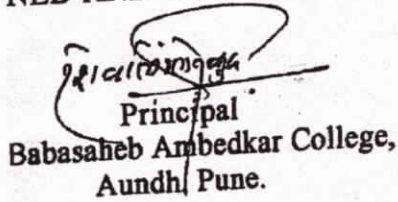 Principal
Babasaheb Ambedkar College,
Aundh, Pune.